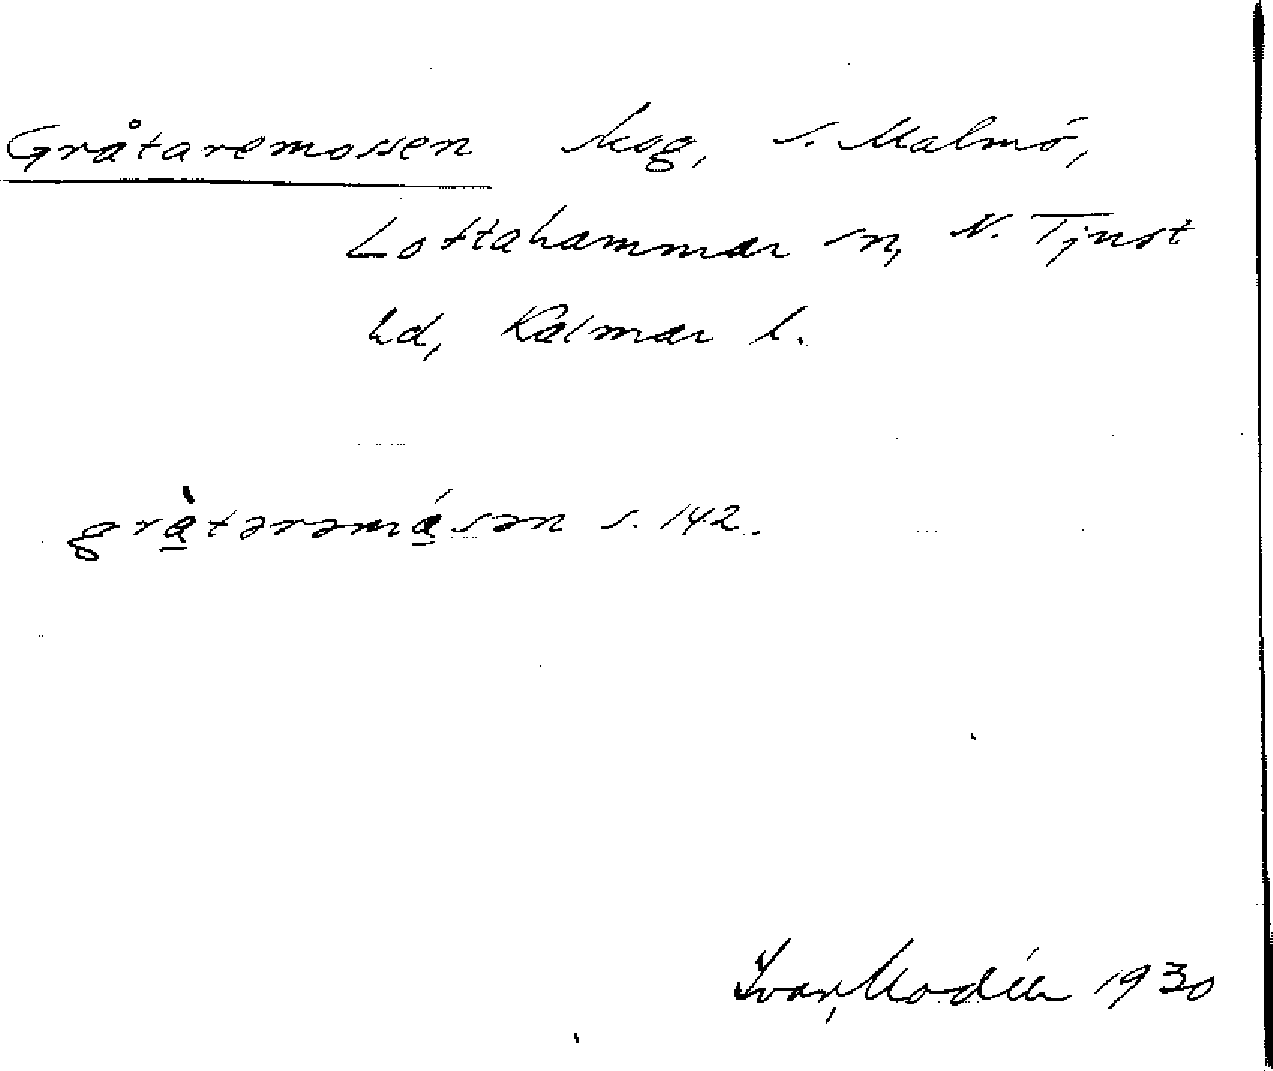 Gråtaremossen skog, S. Malmö,
Loftahammar sn, N. Tjust
hd, Kalmar l.
gràtərəmásən s. 142.
Ivar Modéer 1930